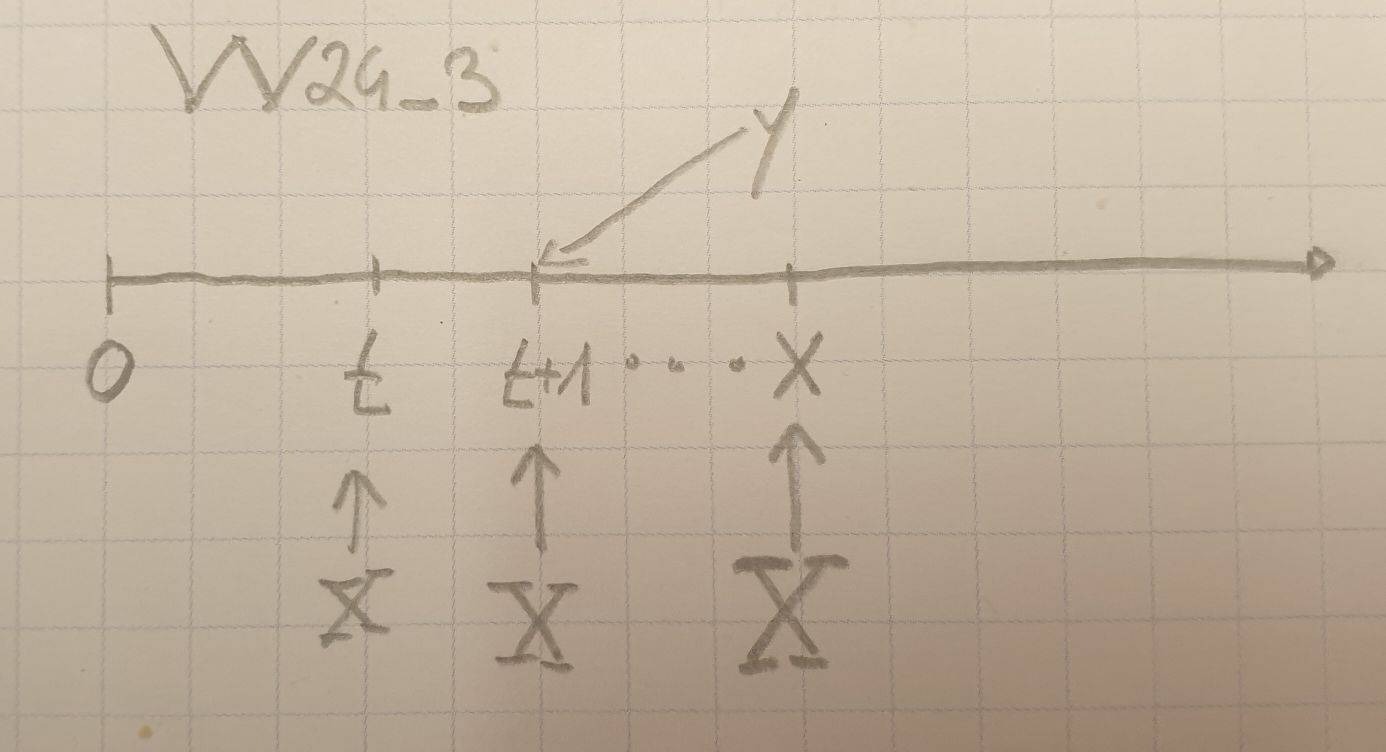 W24_3
y
0 t t+1 . . . x
X X X